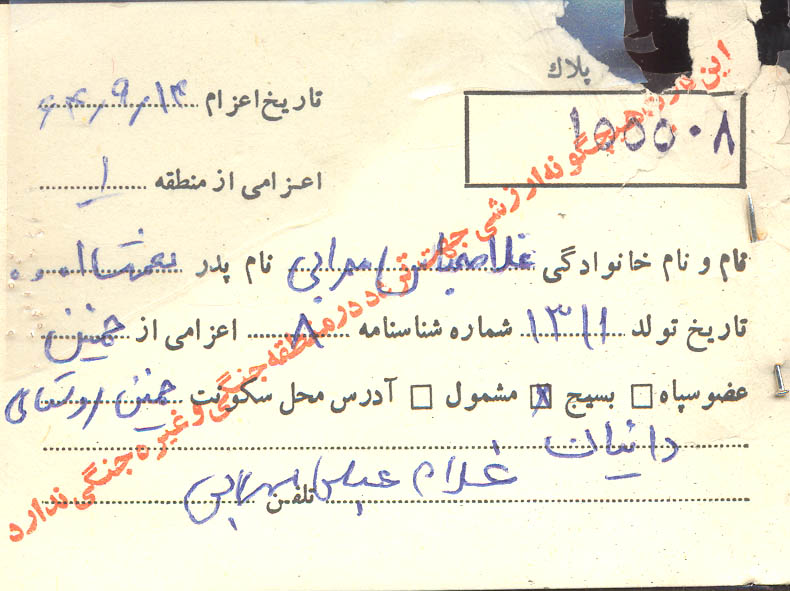 پلاك
تاریخ اعزام ۶۴,۹,۱۴
۱۵۵۵۰۸
اعزامی از منطقه ۱
نام و نام خانوادگی غلامعباس نام پدر
تاریخ تولد ۱۳۱۱ شماره شناسنامه ۸ اعزامی از خمین
عضو سپاه □ بسیج ☒ مشمول □ آدرس محل سکونت خمین روستای
تلفن غلام عباس
این هیچگونه ارزشی جهت تردد در منطقه جنگی و غیره جنگی ندارد